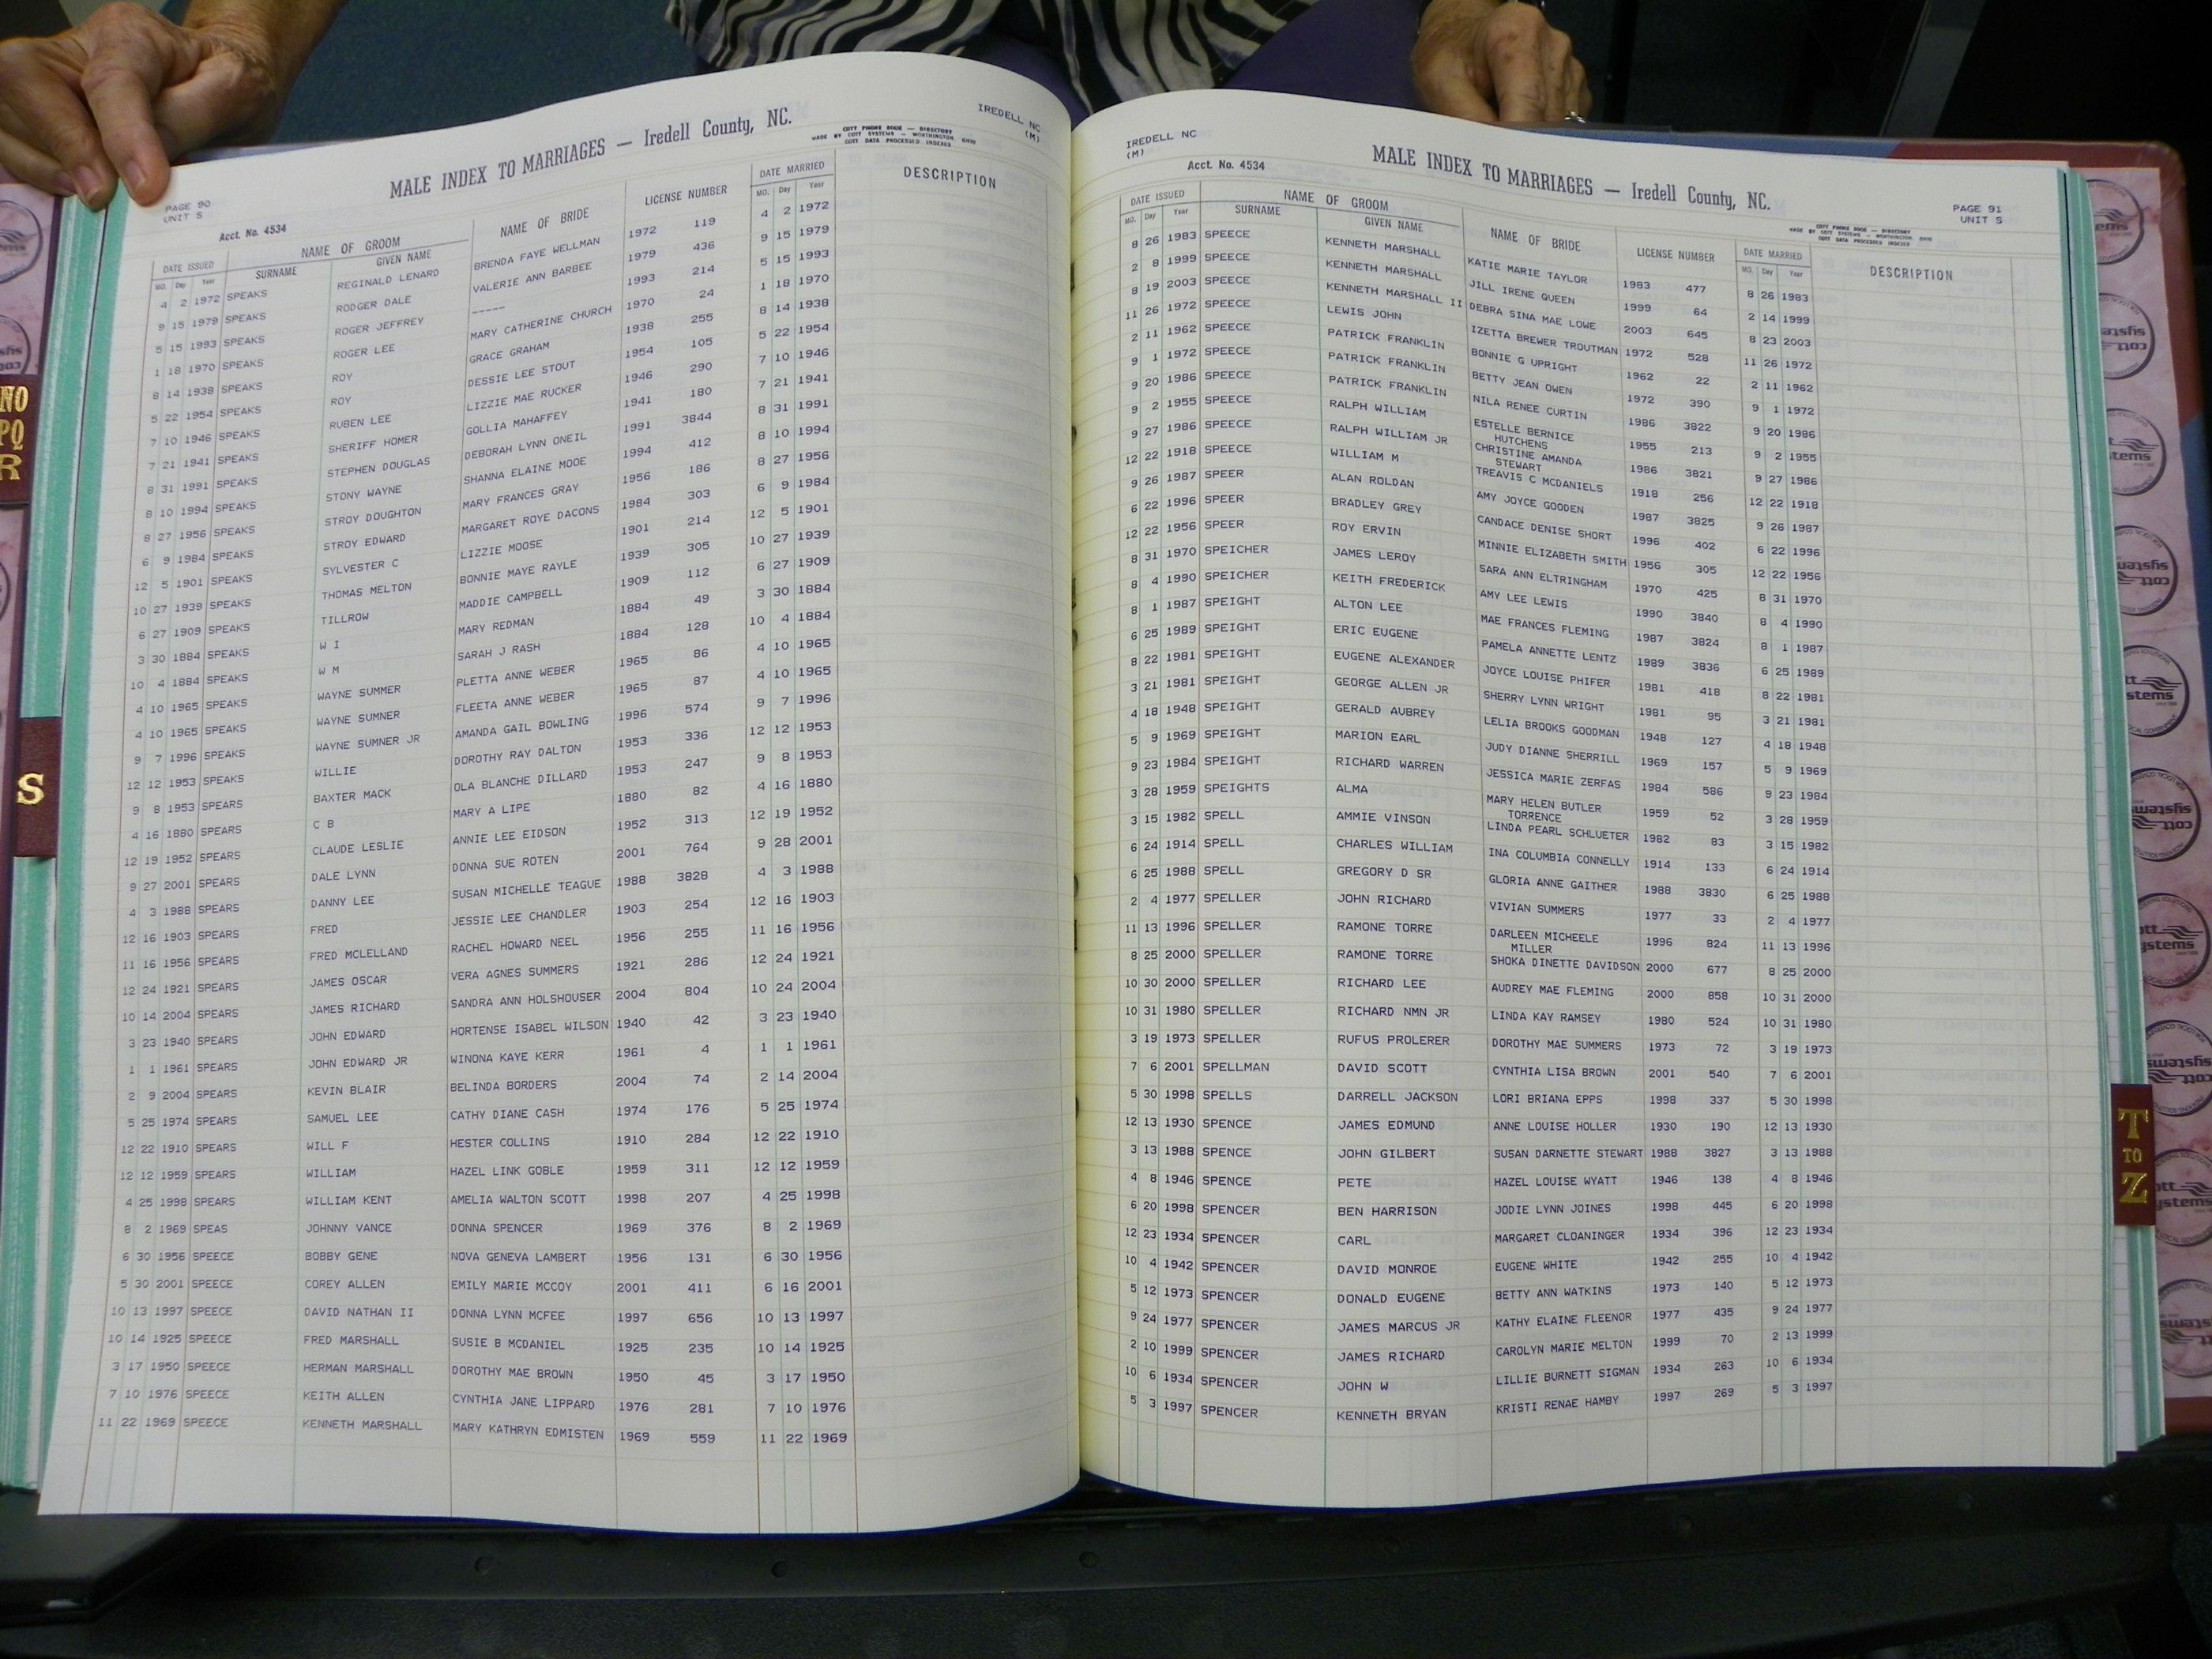 PAGE 90
UNIT S
MALE INDEX TO MARRIAGES — Iredell County, NC.
COTT PHONE BOOK — DIRECTORY
MADE BY COTT SYSTEMS — WORTHINGTON, OHIO
COTT DATA PROCESSED INDEXES
IREDELL NC
(M)
Acct. No. 4534
DATE ISSUED NAME OF GROOM NAME OF BRIDE LICENSE NUMBER DATE MARRIED DESCRIPTION
MO. Day Year SURNAME GIVEN NAME MO. Day Year
4 2 1972 SPEAKS REGINALD LENARD BRENDA FAYE WELLMAN 1972 119 4 2 1972
9 15 1979 SPEAKS RODGER DALE VALERIE ANN BARBEE 1979 436 9 15 1979
5 15 1993 SPEAKS ROGER JEFFREY ----- 1993 214 5 15 1993
1 18 1970 SPEAKS ROGER LEE MARY CATHERINE CHURCH 1970 24 1 18 1970
8 14 1938 SPEAKS ROY GRACE GRAHAM 1938 255 8 14 1938
5 22 1954 SPEAKS ROY DESSIE LEE STOUT 1954 105 5 22 1954
7 10 1946 SPEAKS RUBEN LEE LIZZIE MAE RUCKER 1946 290 7 10 1946
7 21 1941 SPEAKS SHERIFF HOMER GOLLIA MAHAFFEY 1941 180 7 21 1941
8 31 1991 SPEAKS STEPHEN DOUGLAS DEBORAH LYNN ONEIL 1991 3844 8 31 1991
8 10 1994 SPEAKS STONY WAYNE SHANNA ELAINE MOOE 1994 412 8 10 1994
8 27 1956 SPEAKS STROY DOUGHTON MARY FRANCES GRAY 1956 186 8 27 1956
6 9 1984 SPEAKS STROY EDWARD MARGARET ROYE DACONS 1984 303 6 9 1984
12 5 1901 SPEAKS SYLVESTER C LIZZIE MOOSE 1901 214 12 5 1901
10 27 1939 SPEAKS THOMAS MELTON BONNIE MAYE RAYLE 1939 305 10 27 1939
6 27 1909 SPEAKS TILLROW MADDIE CAMPBELL 1909 112 6 27 1909
3 30 1884 SPEAKS W I MARY REDMAN 1884 49 3 30 1884
10 4 1884 SPEAKS W M SARAH J RASH 1884 128 10 4 1884
4 10 1965 SPEAKS WAYNE SUMMER PLETTA ANNE WEBER 1965 86 4 10 1965
4 10 1965 SPEAKS WAYNE SUMNER FLEETA ANNE WEBER 1965 87 4 10 1965
9 7 1996 SPEAKS WAYNE SUMNER JR AMANDA GAIL BOWLING 1996 574 9 7 1996
12 12 1953 SPEAKS WILLIE DOROTHY RAY DALTON 1953 336 12 12 1953
9 8 1953 SPEARS BAXTER MACK OLA BLANCHE DILLARD 1953 247 9 8 1953
4 16 1880 SPEARS C B MARY A LIPE 1880 82 4 16 1880
12 19 1952 SPEARS CLAUDE LESLIE ANNIE LEE EIDSON 1952 313 12 19 1952
9 27 2001 SPEARS DALE LYNN DONNA SUE ROTEN 2001 764 9 28 2001
4 3 1988 SPEARS DANNY LEE SUSAN MICHELLE TEAGUE 1988 3828 4 3 1988
12 16 1903 SPEARS FRED JESSIE LEE CHANDLER 1903 254 12 16 1903
11 16 1956 SPEARS FRED MCLELLAND RACHEL HOWARD NEEL 1956 255 11 16 1956
12 24 1921 SPEARS JAMES OSCAR VERA AGNES SUMMERS 1921 286 12 24 1921
10 14 2004 SPEARS JAMES RICHARD SANDRA ANN HOLSHOUSER 2004 804 10 24 2004
3 23 1940 SPEARS JOHN EDWARD HORTENSE ISABEL WILSON 1940 42 3 23 1940
1 1 1961 SPEARS JOHN EDWARD JR WINONA KAYE KERR 1961 4 1 1 1961
2 9 2004 SPEARS KEVIN BLAIR BELINDA BORDERS 2004 74 2 14 2004
5 25 1974 SPEARS SAMUEL LEE CATHY DIANE CASH 1974 176 5 25 1974
12 22 1910 SPEARS WILL F HESTER COLLINS 1910 284 12 22 1910
12 12 1959 SPEARS WILLIAM HAZEL LINK GOBLE 1959 311 12 12 1959
4 25 1998 SPEARS WILLIAM KENT AMELIA WALTON SCOTT 1998 207 4 25 1998
8 2 1969 SPEAS JOHNNY VANCE DONNA SPENCER 1969 376 8 2 1969
6 30 1956 SPEECE BOBBY GENE NOVA GENEVA LAMBERT 1956 131 6 30 1956
5 30 2001 SPEECE COREY ALLEN EMILY MARIE MCCOY 2001 411 6 16 2001
10 13 1997 SPEECE DAVID NATHAN II DONNA LYNN MCFEE 1997 656 10 13 1997
10 14 1925 SPEECE FRED MARSHALL SUSIE B MCDANIEL 1925 235 10 14 1925
3 17 1950 SPEECE HERMAN MARSHALL DOROTHY MAE BROWN 1950 45 3 17 1950
7 10 1976 SPEECE KEITH ALLEN CYNTHIA JANE LIPPARD 1976 281 7 10 1976
11 22 1969 SPEECE KENNETH MARSHALL MARY KATHRYN EDMISTEN 1969 559 11 22 1969
IREDELL NC
(M)
Acct. No. 4534
MALE INDEX TO MARRIAGES — Iredell County, NC.
PAGE 91
UNIT S
COTT PHONE BOOK — DIRECTORY
MADE BY COTT SYSTEMS — WORTHINGTON, OHIO
COTT DATA PROCESSED INDEXES
DATE ISSUED NAME OF GROOM NAME OF BRIDE LICENSE NUMBER DATE MARRIED DESCRIPTION
MO. Day Year SURNAME GIVEN NAME MO. Day Year
8 26 1983 SPEECE KENNETH MARSHALL KATIE MARIE TAYLOR 1983 477 8 26 1983
2 8 1999 SPEECE KENNETH MARSHALL JILL IRENE QUEEN 1999 64 2 14 1999
8 19 2003 SPEECE KENNETH MARSHALL II DEBRA SINA MAE LOWE 2003 645 8 23 2003
11 26 1972 SPEECE LEWIS JOHN IZETTA BREWER TROUTMAN 1972 528 11 26 1972
2 11 1962 SPEECE PATRICK FRANKLIN BONNIE G UPRIGHT 1962 22 2 11 1962
9 1 1972 SPEECE PATRICK FRANKLIN BETTY JEAN OWEN 1972 390 9 1 1972
9 20 1986 SPEECE PATRICK FRANKLIN NILA RENEE CURTIN 1986 3822 9 20 1986
9 2 1955 SPEECE RALPH WILLIAM ESTELLE BERNICE HUTCHENS 1955 213 9 2 1955
9 27 1986 SPEECE RALPH WILLIAM JR CHRISTINE AMANDA STEWART 1986 3821 9 27 1986
12 22 1918 SPEECE WILLIAM M TREAVIS C MCDANIELS 1918 256 12 22 1918
9 26 1987 SPEER ALAN ROLDAN AMY JOYCE GOODEN 1987 3825 9 26 1987
6 22 1996 SPEER BRADLEY GREY CANDACE DENISE SHORT 1996 402 6 22 1996
12 22 1956 SPEER ROY ERVIN MINNIE ELIZABETH SMITH 1956 305 12 22 1956
8 31 1970 SPEICHER JAMES LEROY SARA ANN ELTRINGHAM 1970 425 8 31 1970
8 4 1990 SPEICHER KEITH FREDERICK AMY LEE LEWIS 1990 3840 8 4 1990
8 1 1987 SPEIGHT ALTON LEE MAE FRANCES FLEMING 1987 3824 8 1 1987
6 25 1989 SPEIGHT ERIC EUGENE PAMELA ANNETTE LENTZ 1989 3836 6 25 1989
8 22 1981 SPEIGHT EUGENE ALEXANDER JOYCE LOUISE PHIFER 1981 418 8 22 1981
3 21 1981 SPEIGHT GEORGE ALLEN JR SHERRY LYNN WRIGHT 1981 95 3 21 1981
4 18 1948 SPEIGHT GERALD AUBREY LELIA BROOKS GOODMAN 1948 127 4 18 1948
5 9 1969 SPEIGHT MARION EARL JUDY DIANNE SHERRILL 1969 157 5 9 1969
9 23 1984 SPEIGHT RICHARD WARREN JESSICA MARIE ZERFAS 1984 586 9 23 1984
3 28 1959 SPEIGHTS ALMA MARY HELEN BUTLER TORRENCE 1959 52 3 28 1959
3 15 1982 SPELL AMMIE VINSON LINDA PEARL SCHLUETER 1982 83 3 15 1982
6 24 1914 SPELL CHARLES WILLIAM INA COLUMBIA CONNELLY 1914 133 6 24 1914
6 25 1988 SPELL GREGORY D SR GLORIA ANNE GAITHER 1988 3830 6 25 1988
2 4 1977 SPELLER JOHN RICHARD VIVIAN SUMMERS 1977 33 2 4 1977
11 13 1996 SPELLER RAMONE TORRE DARLEEN MICHEELE MILLER 1996 824 11 13 1996
8 25 2000 SPELLER RAMONE TORRE SHOKA DINETTE DAVIDSON 2000 677 8 25 2000
10 30 2000 SPELLER RICHARD LEE AUDREY MAE FLEMING 2000 858 10 31 2000
10 31 1980 SPELLER RICHARD NMN JR LINDA KAY RAMSEY 1980 524 10 31 1980
3 19 1973 SPELLER RUFUS PROLERER DOROTHY MAE SUMMERS 1973 72 3 19 1973
7 6 2001 SPELLMAN DAVID SCOTT CYNTHIA LISA BROWN 2001 540 7 6 2001
5 30 1998 SPELLS DARRELL JACKSON LORI BRIANA EPPS 1998 337 5 30 1998
12 13 1930 SPENCE JAMES EDMUND ANNE LOUISE HOLLER 1930 190 12 13 1930
3 13 1988 SPENCE JOHN GILBERT SUSAN DARNETTE STEWART 1988 3827 3 13 1988
4 8 1946 SPENCE PETE HAZEL LOUISE WYATT 1946 138 4 8 1946
6 20 1998 SPENCER BEN HARRISON JODIE LYNN JOINES 1998 445 6 20 1998
12 23 1934 SPENCER CARL MARGARET CLOANINGER 1934 396 12 23 1934
10 4 1942 SPENCER DAVID MONROE EUGENE WHITE 1942 255 10 4 1942
5 12 1973 SPENCER DONALD EUGENE BETTY ANN WATKINS 1973 140 5 12 1973
9 24 1977 SPENCER JAMES MARCUS JR KATHY ELAINE FLEENOR 1977 435 9 24 1977
2 10 1999 SPENCER JAMES RICHARD CAROLYN MARIE MELTON 1999 70 2 13 1999
10 6 1934 SPENCER JOHN W LILLIE BURNETT SIGMAN 1934 263 10 6 1934
5 3 1997 SPENCER KENNETH BRYAN KRISTI RENAE HAMBY 1997 269 5 3 1997
NO
PQ
R
S
T
TO
Z
cott
systems